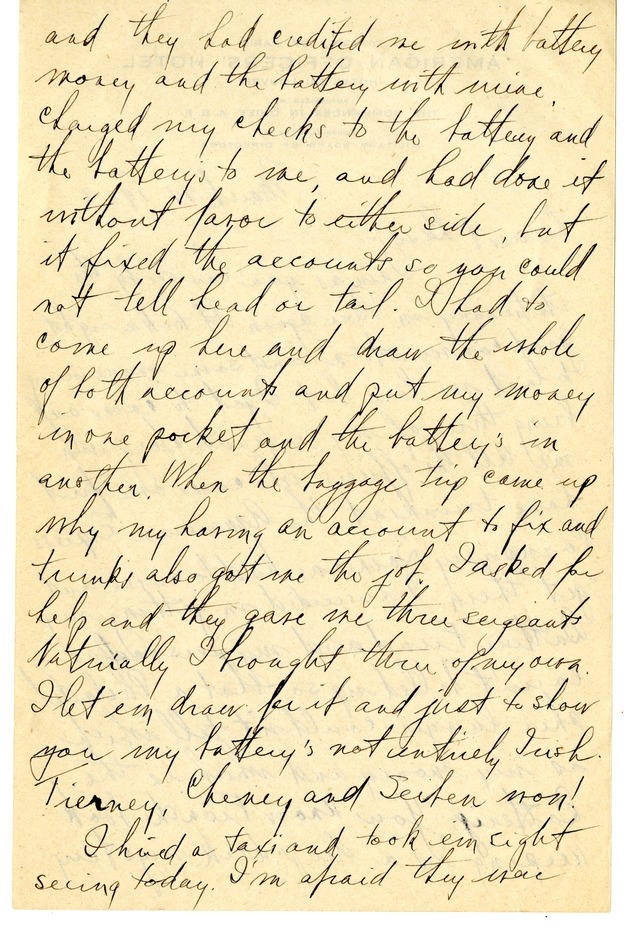 and they had credited me with battery
money and the battery with mine,
charged my checks to the battery and
the battery's to me, and had done it
without favor to either side, but
it fixed the accounts so you could
not tell head or tail. I had to
come up here and draw the whole
of both accounts and put my money
in one pocket and the battery's in
another. When the baggage trip came up
why my having an account to fix and
trunks also got me the job. I asked for
help and they gave me three sergeants
Naturially I brought three of my own.
I let em draw for it and just to show
you my battery's not entirely Irish.
Tierney, Cheney and Seiben won!
I hired a taxi and took em sight
seeing today. I'm afraid they
AMERICAN OFFICERS' HOTEL